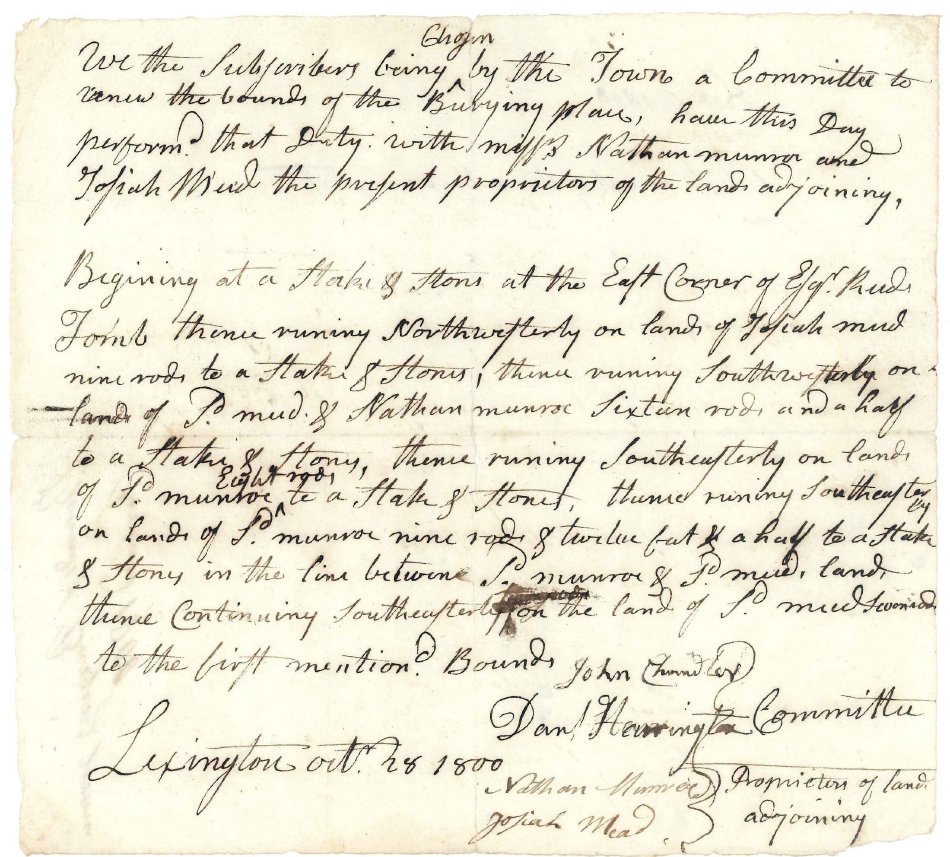 Chosen
We the Subscribers being ^ by the Town a Committee to
renew the bounds of the Burying place, have this Day
perform'd that Duty with messrs Nathan munroe and
Josiah Mead the present proprietors of the lands adjoining,
Begining at a Stake & Stons at the East Corner of Esqr. Reeds
Tomb thence runing Northwesterly on lands of Josiah mead
nine rods to a Stake & Stones, thence runing Southwesterly on
lands of Sd mead & Nathan munroe Sixteen rods and a half
to a Stake & Stones, thence runing Southeasterly on lands
Eight rods
of Sd munroe ^ to a Stake & Stones, thence runing Southeasterly
on lands of Sd munroe nine rods & twelve feet & a half to a Stake
& Stones in the line between Sd munroe & Sd meads land
thence Continuing Southeasterly on the land of Sd mead Seven rods
to the first mention'd Bounds
John Chandler
Danl Harrington } Committee
Lexington octr. 28 1800
Nathan Munroe } Proprieters of land
Josiah Mead } adjoining